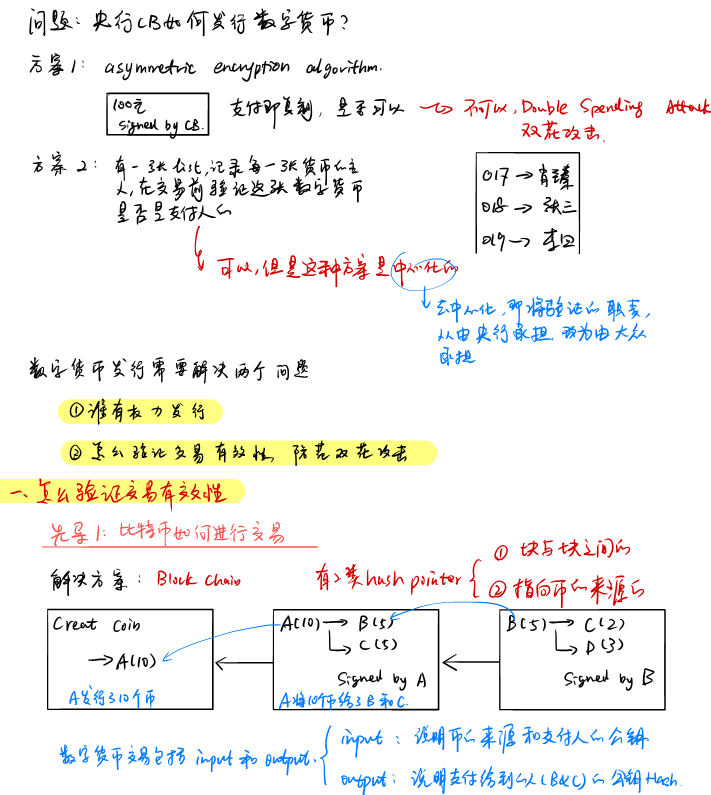 问题: 央行CB如何发行数字货币?
方案1: asymmetric encryption algorithm.
100元
signed by CB.
支付即复制, 是否可以 → 不可以, Double Spending Attack
双花攻击.
方案2: 有一张list, 记录每一张货币的主
人, 在交易前验证这张数字货币
是否是支付人的
017 → 肖臻
018 → 张三
019 → 李四
可以, 但是这种方案是中心化的
去中心化, 即将验证的职责,
从由央行承担, 改为由大众
承担
数字货币发行需要解决两个问题
①谁有权力发行
②怎么验证交易有效性, 防范双花攻击
一、怎么验证交易有效性
先导1: 比特币如何进行交易
解决方案: Block Chain
有2类hash pointer
① 块与块之间的
② 指向币的来源的
Creat coin
→A(10)
A发行了10个币
A(10) → B(5)
→ C(5)
Signed by A
A将10个币给了B和C.
B(5) → C(2)
→ D(3)
Signed by B
数字货币交易包括 input 和 output.
input : 说明币的来源和支付人的公钥
output: 说明支付给到的人(B&C)的公钥Hash.